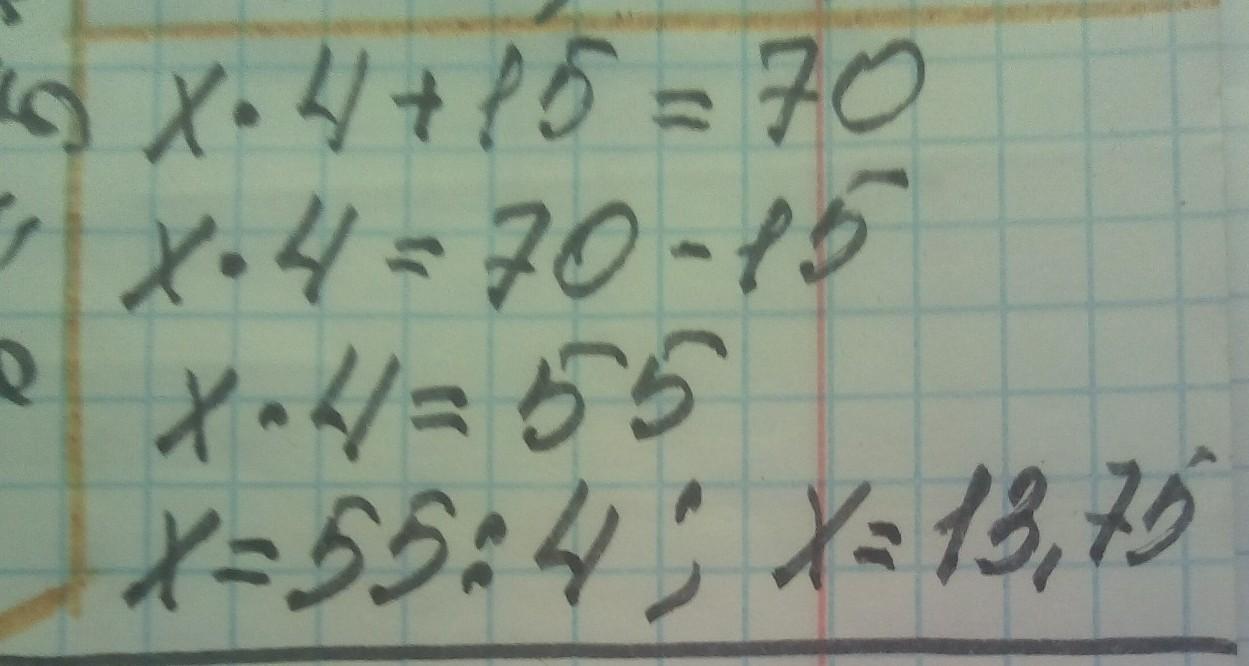 б) x · 4 + 15 = 70
x · 4 = 70 - 15
x · 4 = 55
x = 55 : 4 ; x = 13,75